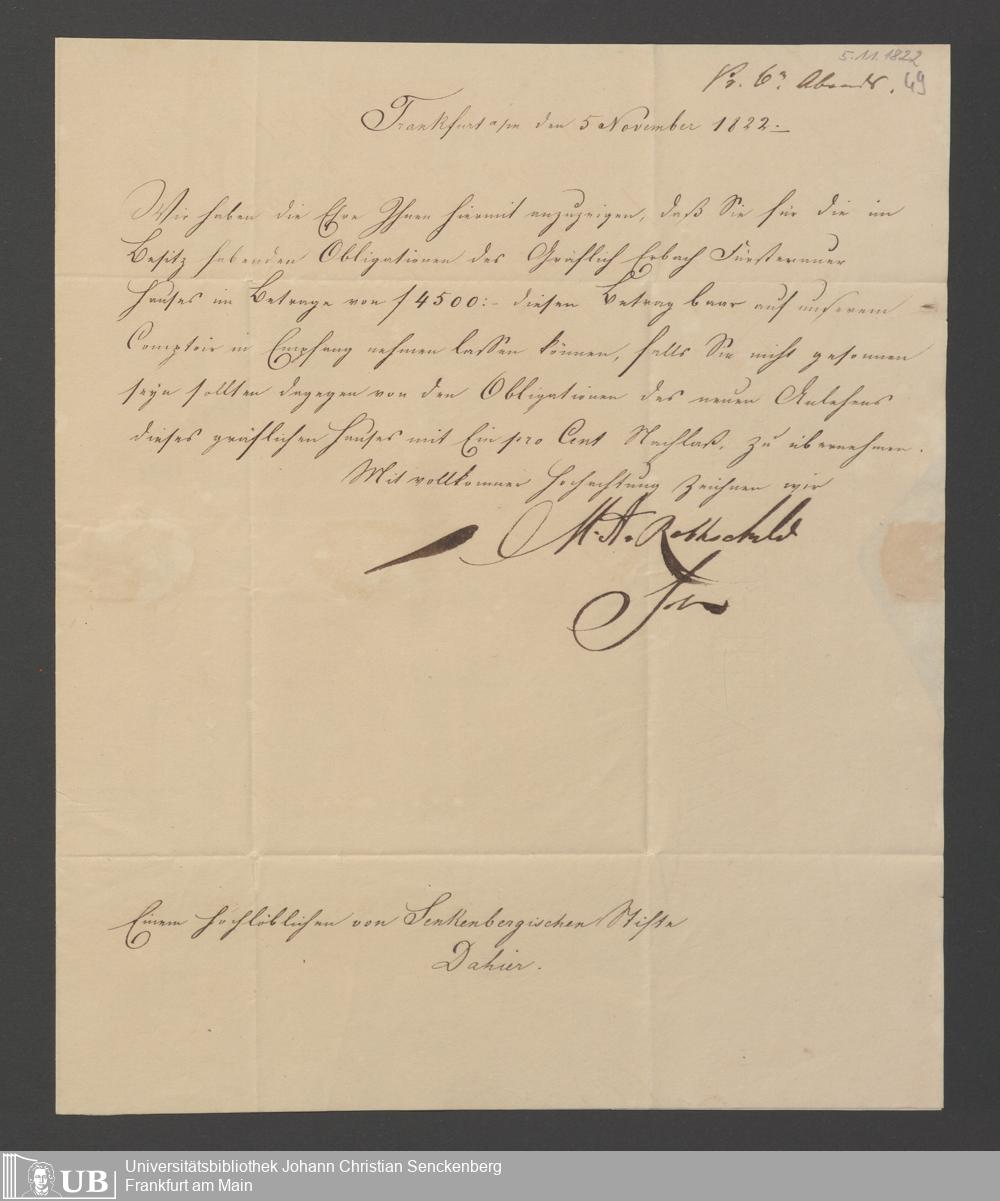 5.11.1822
Pr. 6n Abends.
49
Frankfurt a/m den 5 November 1822.–
Wir haben die Ehre Ihnen hiermit anzuzeigen, daß Sie für die im
Besitz habenden Obligationen des Gräflich Erbach Fürstenauer
Hauses im Betrage von f 4500:– diesen Betrag baar auf unserem
Comptoir in Empfang nehmen lassen können, falls Sie nicht gesonnen
seyn sollten dagegen von den Obligationen des neuen Anlehens
dieses gräflichen Hauses mit Ein pro Cent Nachlaß, zu übernehmen.
Mit vollkomner Hochachtung zeichnen wir
M. A. Rothschild
Einem Hochlöblichen von Senkenbergischen Stifte
Dahier.
UB
Universitätsbibliothek Johann Christian Senckenberg
Frankfurt am Main